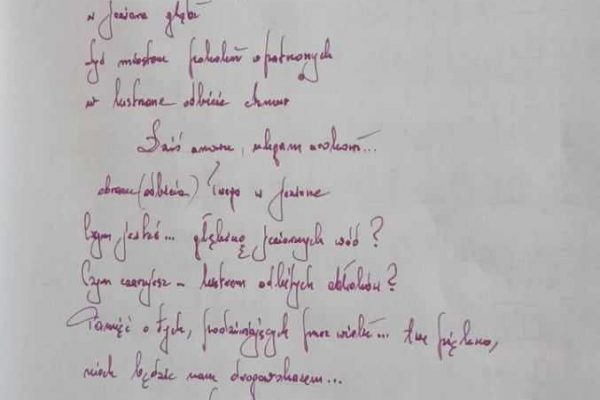 w jeziora głębi
żyć miastem pokoleń opatrzonych
w lustrzane odbicie chmur
Dziś znowu, ulegam urokowi...
obrazu (odbicia) Twego w jeziorze
Czym jesteś... głębiną jeziornych wód?
Czym czarujesz - lustrem odbitych obłoków?
Pamięć o tych, podziwiających przez wieki... twe piękno,
niech będzie nam drogowskazem...